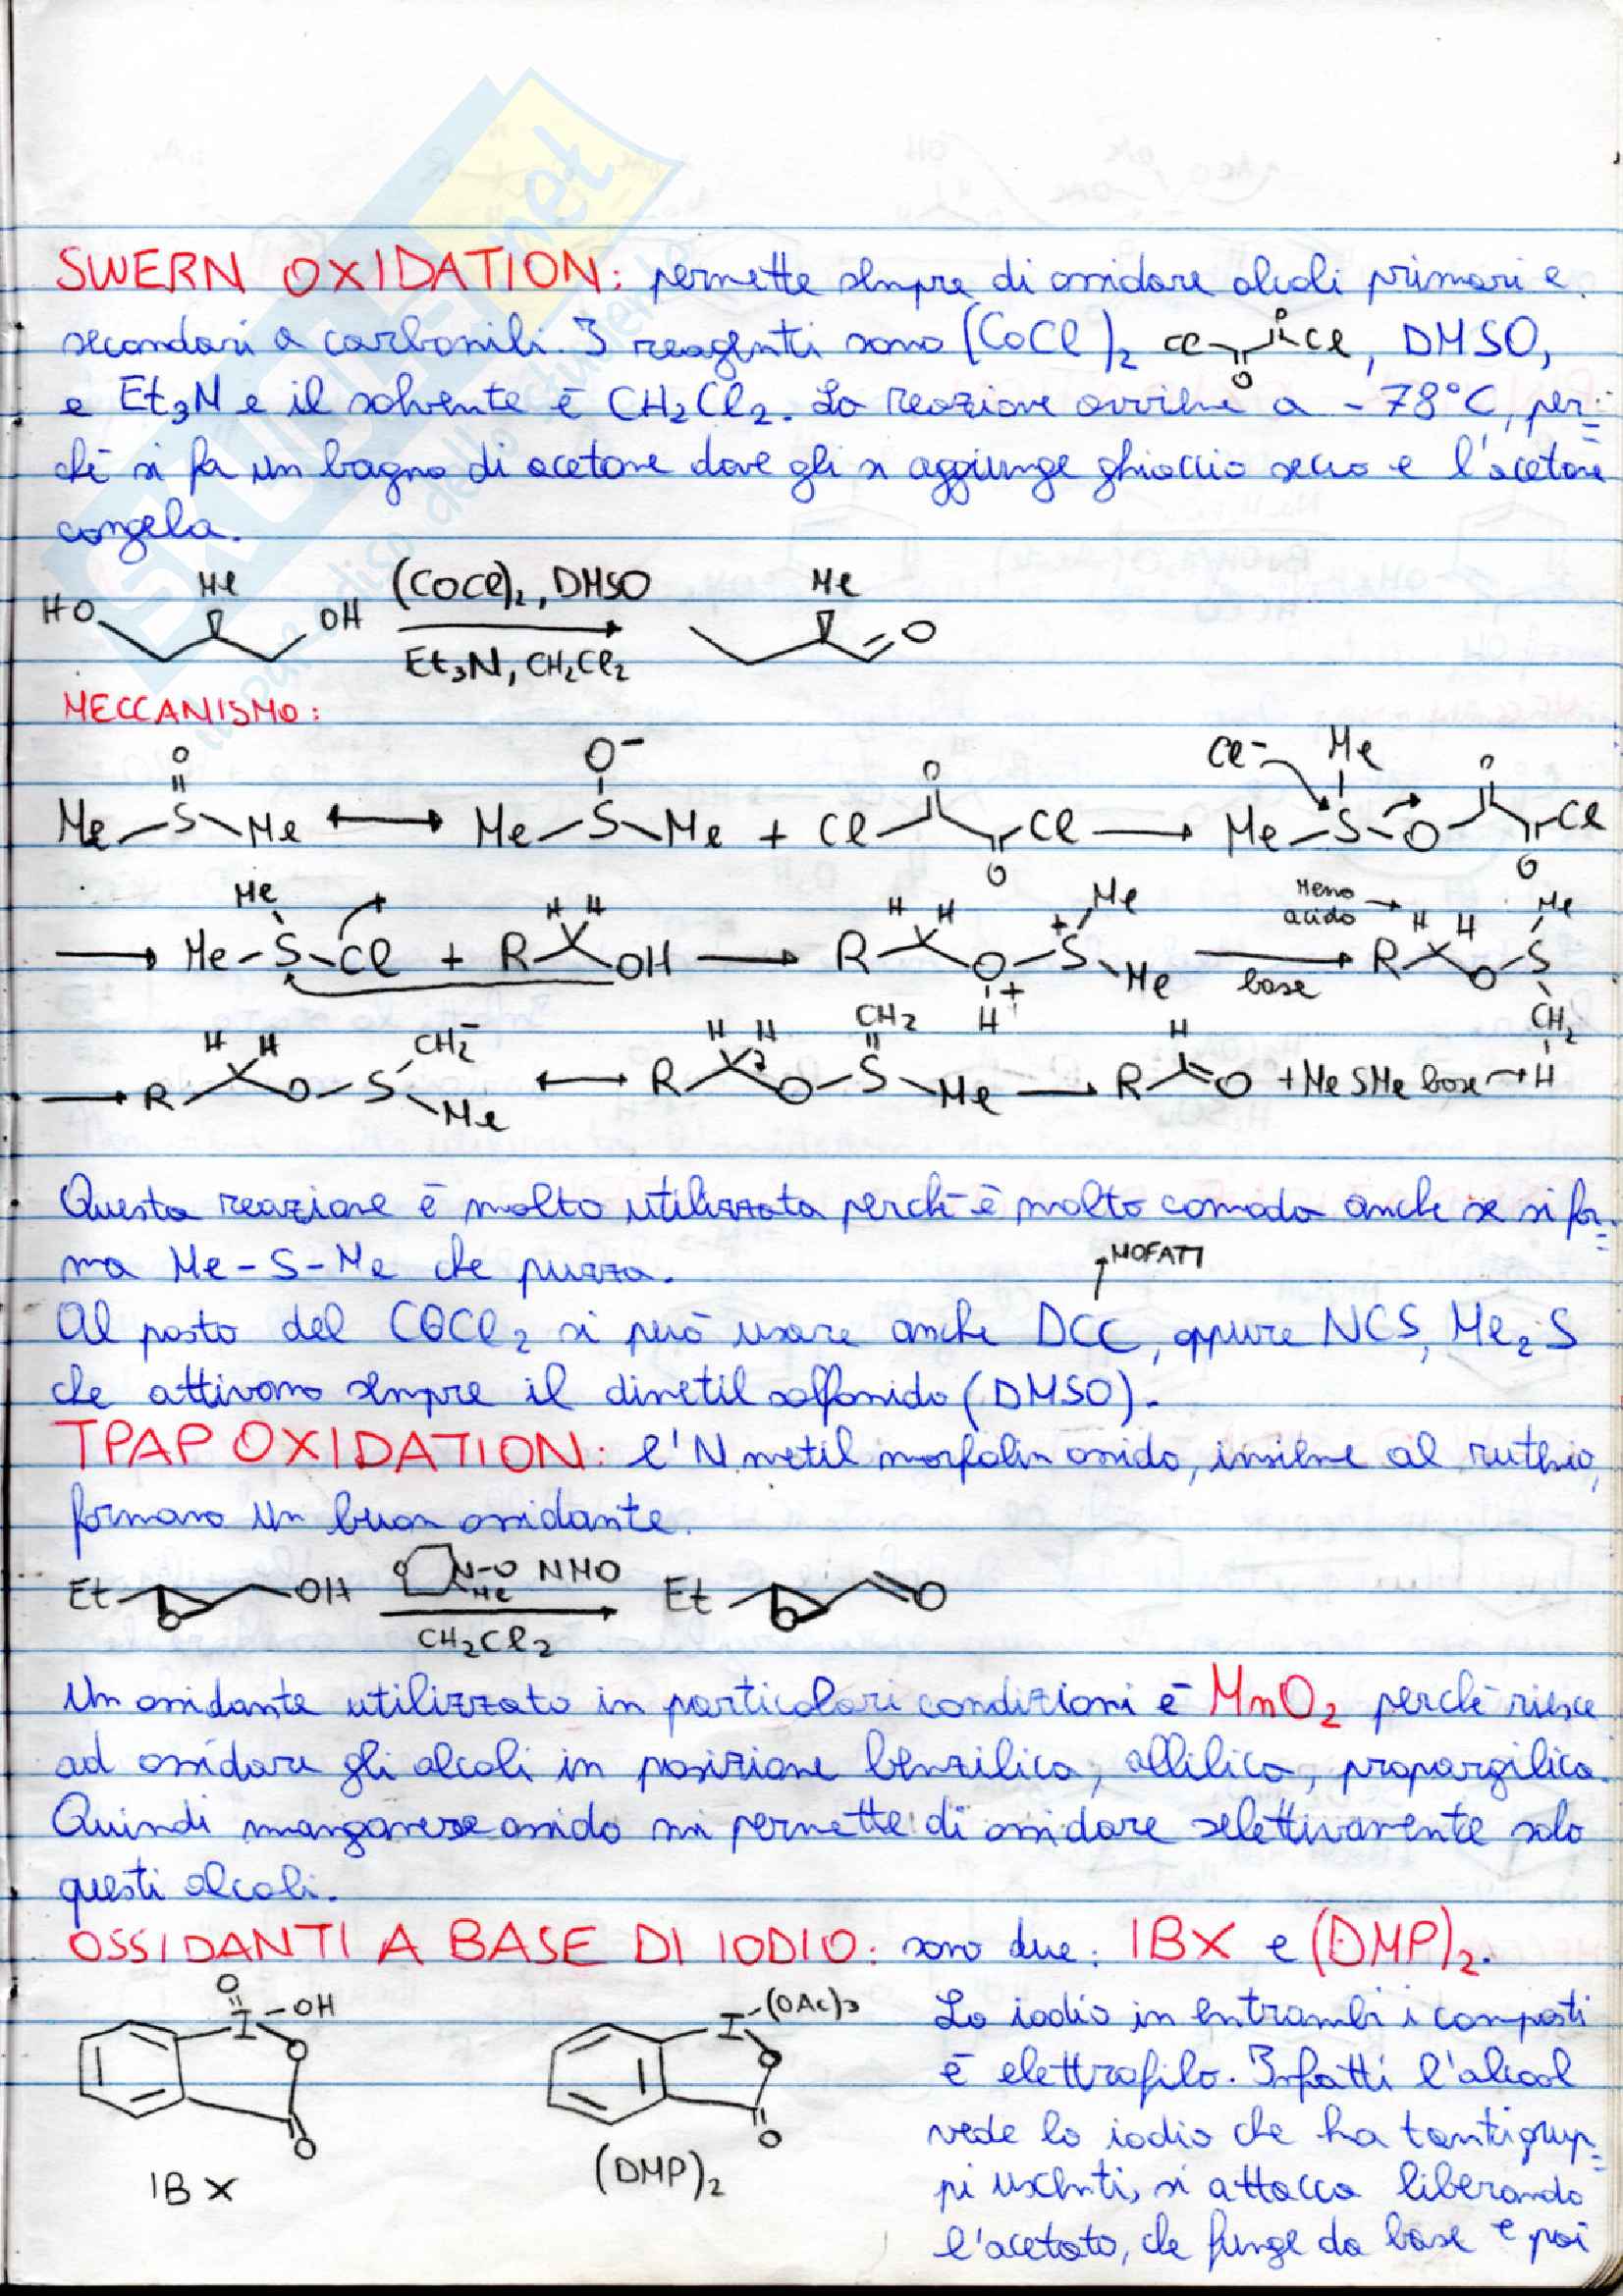 SWERN OXIDATION: permette sempre di ossidare alcoli primari e
secondari a carbonili. I reagenti sono (COCl)₂ Cl O O Cl, DMSO,
e Et₃N e il solvente è CH₂Cl₂. La reazione avviene a -78°C, per=
chè si fa un bagno di acetone dove gli si aggiunge ghiaccio secco e l'acetone
congela.
HO Me OH (COCl)₂, DMSO Me O
Et₃N, CH₂Cl₂
MECCANISMO:
O O⁻ O Cl⁻ Me O
Me S Me ↔ Me-S-Me + Cl Cl → Me-S-O Cl
O O
→ Me-S-Cl + R OH → R O S Me → R O S
Me H H H H + Me Meno acido → H H Me
H + base CH₂
→ R O-S CH₂⁻ ↔ R O-S-Me → R O + MeSMe base → H
H H Me H H CH₂ H
Questa reazione è molto utilizzata perchè è molto comoda anche se si for=
ma Me-S-Me che puzza.
MOFATT
Al posto del COCl₂ si può usare anche DCC, oppure NCS, Me₂S
che attivano sempre il dimetil solfossido (DMSO).
TPAP OXIDATION: l'N metil morfolin ossido, insieme al rutenio,
formano un buon ossidante.
Et O OH O N-O NMO Et O O
Me
CH₂Cl₂
Un ossidante utilizzato in particolari condizioni è MnO₂ perchè riesce
ad ossidare gli alcoli in posizione benzilica, allilica, propargilica.
Quindi manganese ossido mi permette di ossidare selettivamente solo
questi alcoli.
OSSIDANTI A BASE DI IODIO: sono due: IBX e (DMP)₂.
O I-OH O O
IBX
I-(OAc)₃ O O
(DMP)₂
Lo iodio in entrambi i composti
è elettrofilo. Infatti l'alcol
vede lo iodio che ha tanti grup=
pi uscenti, si attacca liberando
l'acetato, che funge da base e poi
SKUOLA.net